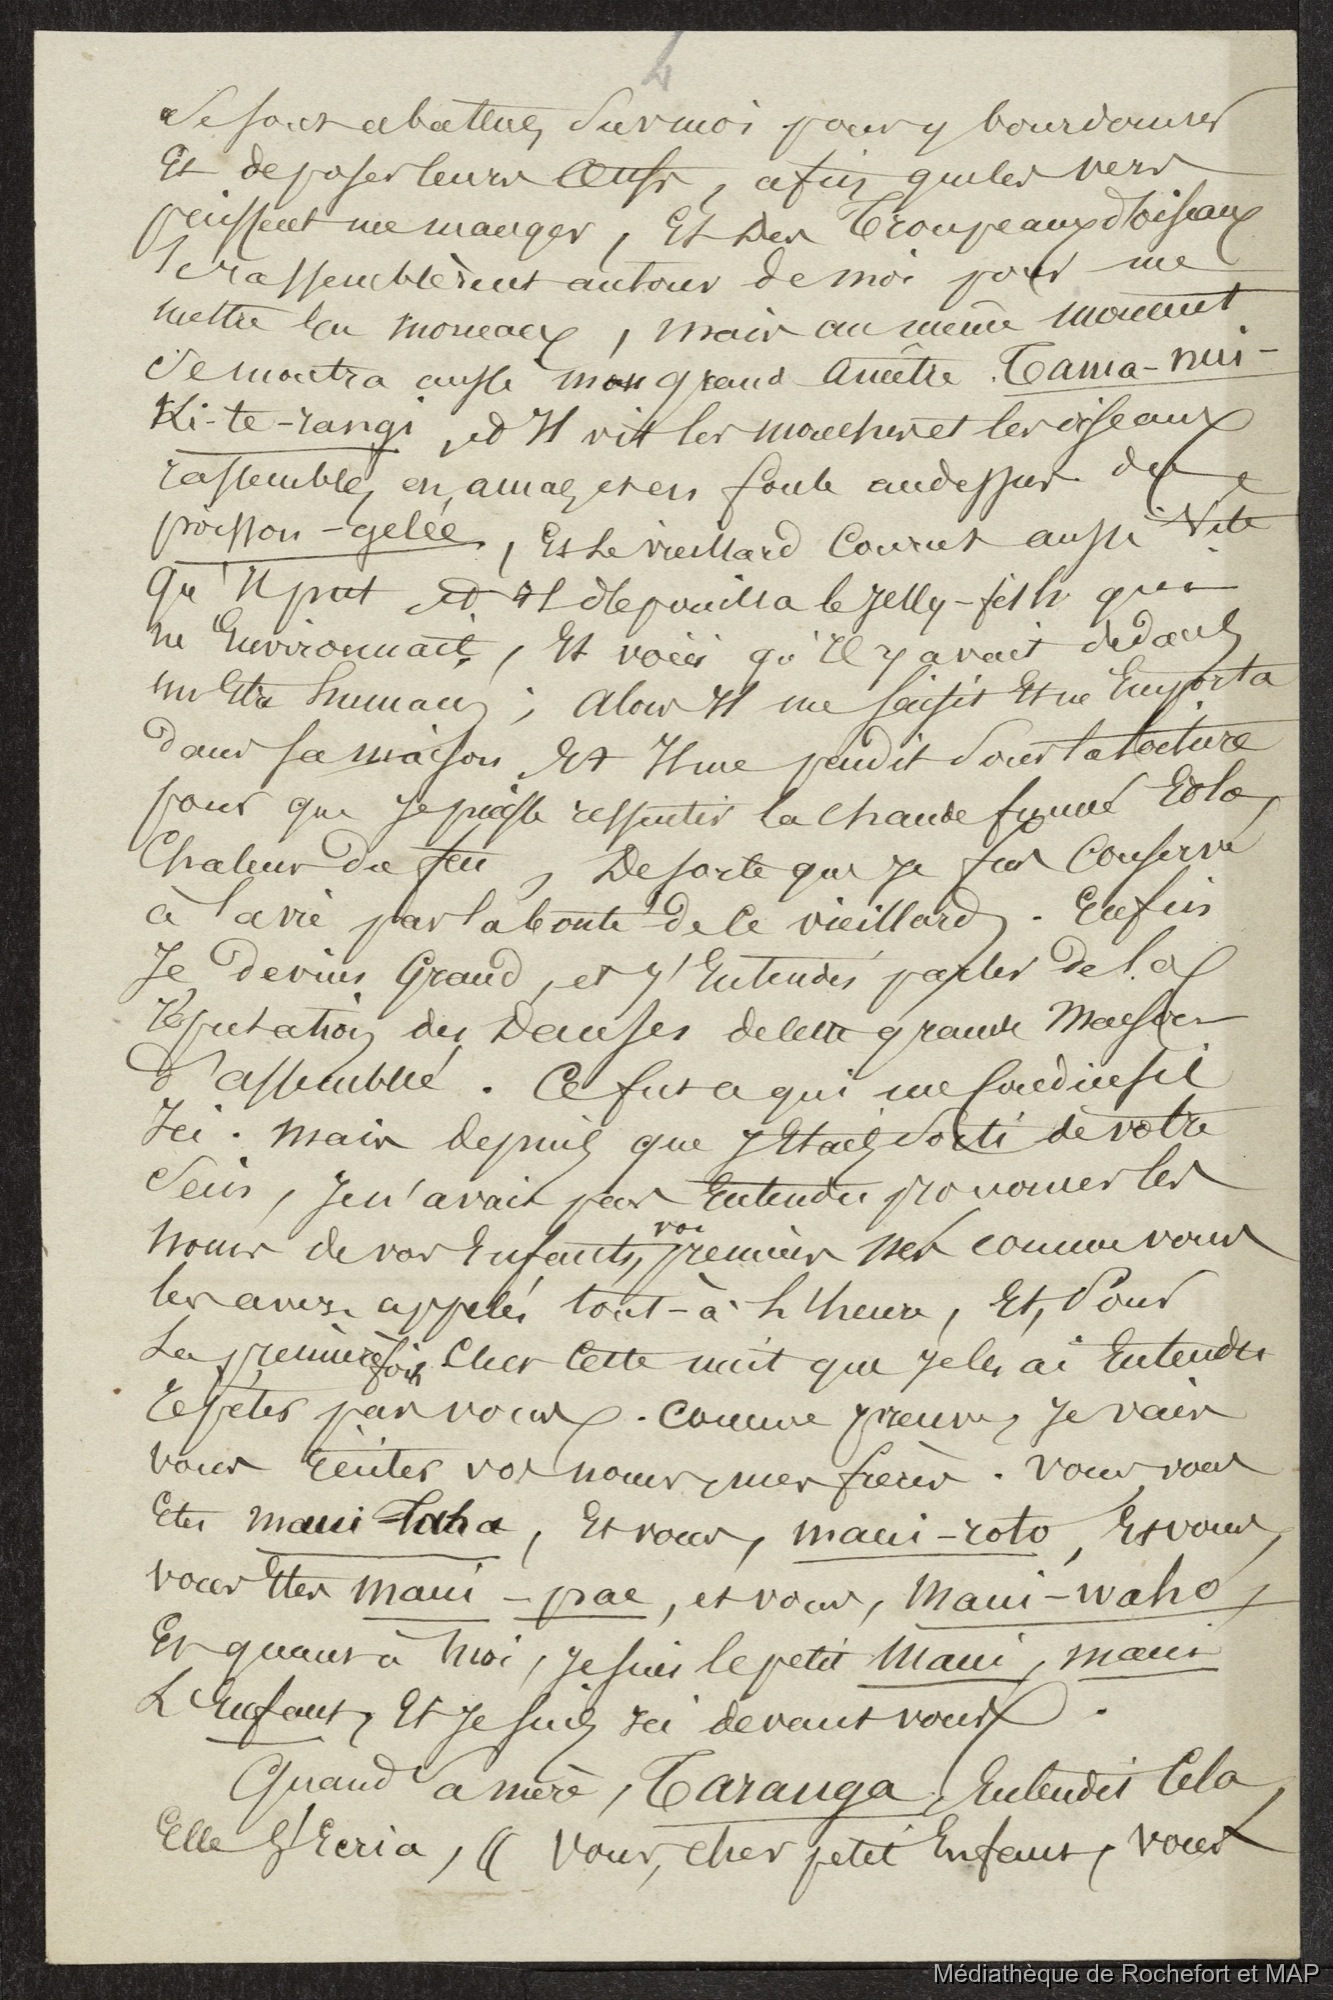 4
se sont abattues sur moi pour y bourdonner
Et deposer leurs Oeufs, afin que les vers
puissent me manger, Et des Troupeaux d'oiseaux
se rassemblèrent autour de moi pour me
mettre En morceaux, mais au même moment
Se montra aussi mon grand Ancêtre Tama-nui-
Ki-te-rangi, et Il vit les mouches et les oiseaux
rassemblés en amas et en foule au dessus du
poisson-gelée, Et le vieillard Courut aussi Vite
qu'Il put et Il dépouilla le jelly-fish qui
me Environnait, Et voici qu'Il y avait dedans
un Etre humain; Alors Il me saisit Et me Emporta
dans sa maison, Et Il me pendit sous la toiture
pour que je puisse ressentir la chaude fumée Et la
Chaleur du feu, De sorte que je fus Conservé
à la vie par la bonté de ce vieillard. Enfin
Je devins Grand, et j'Entendis parler de la
Réputation des Danses de cette grande Maison
d'assemblée. Ce fut ce qui me conduisit
Ici. Mais depuis que j'Etais sorti de votre
Sein, je n'avais pas Entendu prononcer les
noms de vos Enfants, vos premiers nés comme vous
les avez appelés tout-à-l'heure, Et, Pour
La première fois C'est Cette nuit que je les ai Entendu
Répéter par vous. Comme preuve, Je vais
vous réciter vos noms, mes frères. Vous, vous
Etes Maui-taha, Et vous, maui-roto, Et vous,
vous Etes Maui-pae, et vous, Maui-waho,
Et quant à moi, je suis le petit Maui, maui
L'Enfant, Et je suis Ici devant vous.
Quand sa mère, Taranga, Entendit Cela,
Elle S'Ecria, (( Vous, cher petit Enfant, vous
Médiathèque de Rochefort et MAP